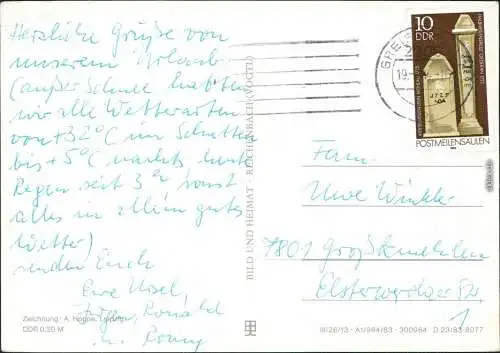 Herzliche Grüße von
unserem Urlaub
(außer Schnee hatten
wir alle Wetterarten
von +32°C im Schatten
bis +5°C nachts
Regen seit 3 sonst
alles in allem gutes
Wetter)
senden Euch
Eure
Ronald
u. Romy
Zeichnung: A. Hoppe, Leipzig
DDR 0,20 M
BILD UND HEIMAT REICHENBACH (VOGTL)
10
DDR
POSTMEILENSÄULEN
GREI
19
Fam.
Uwe Winkler
7801 Großkmehlen
Elsterwerdaer
1
III/26/13 · A1/984/83 · 300984 D 23/83 8077